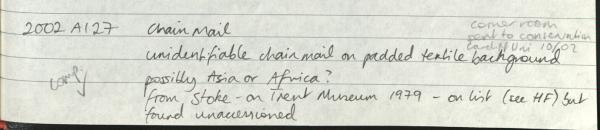 2002 A127 Chain Mail
corner room
sent to conservation
Cardiff Uni 10/02
unidentifiable chain mail on padded textile background
possibly Asia or Africa?
from Stoke-on Trent Museum 1979 - on list (see HF) but
found unaccessioned